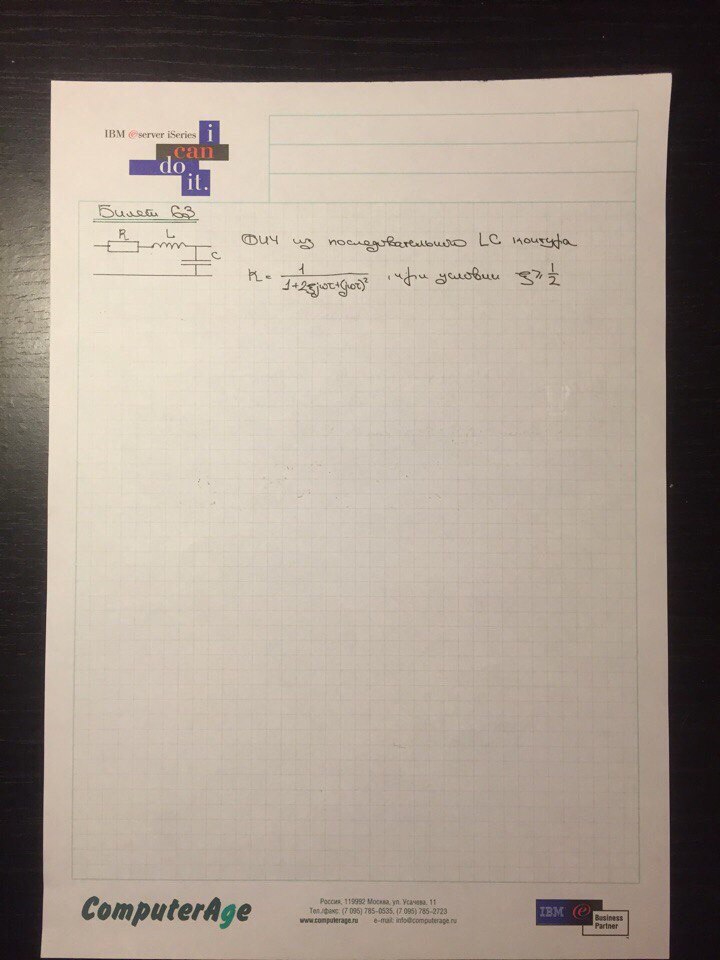 IBM @server iSeries
i
can
do
it.
Билет 63
R L C
ФНЧ из последовательного LC контура
K = 1/(1+2ξjωτ+(jωτ)²) , при условии ξ ≥ 1/2
ComputerAge
Россия, 119992 Москва, ул. Усачева, 11
Тел./факс: (7 095) 785-0535, (7 095) 785-2723
www.computerage.ru e-mail: info@computerage.ru
IBM @
Business
Partner